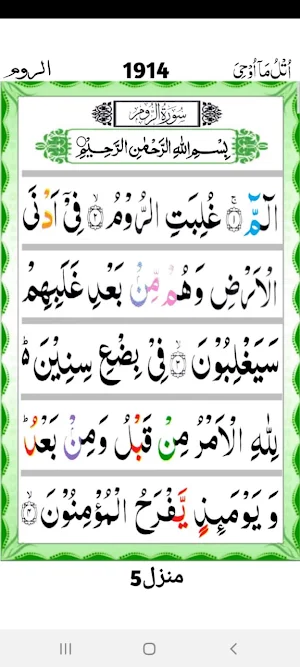 الروم 1914 اُتْلُ مَآ اُوْحِیَ
سُوْرَةُ الرُّوْمِ
بِسْمِ اللّٰهِ الرَّحْمٰنِ الرَّحِيْمِ
الٓمّٓ ۚ﴿۱﴾ غُلِبَتِ الرُّوْمُ ۙ﴿۲﴾ فِیْۤ اَدْنَی
الْاَرْضِ وَهُمْ مِّنْۢ بَعْدِ غَلَبِهِمْ
سَيَغْلِبُوْنَ ۙ﴿۳﴾ فِیْ بِضْعِ سِنِيْنَ ؕ۬
لِلّٰهِ الْاَمْرُ مِنْ قَبْلُ وَمِنْۢ بَعْدُ ؕ
وَ يَوْمَىِٕذٍ يَّفْرَحُ الْمُؤْمِنُوْنَ ۙ﴿۴﴾
منزل5